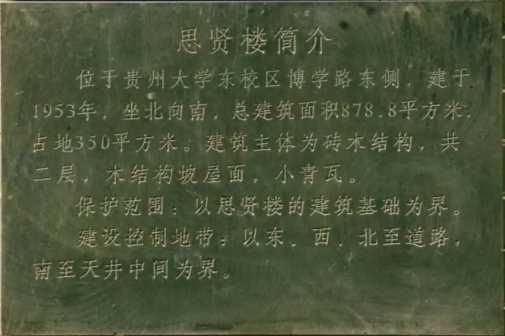 思贤楼简介
位于贵州大学东校区博学路东侧，建于
1953年，坐北向南，总建筑面积878.8平方米，
占地350平方米。建筑主体为砖木结构，共
二层，木结构坡屋面，小青瓦。
保护范围：以思贤楼的建筑基础为界。
建设控制地带：以东、西、北至道路，
南至天井中间为界。